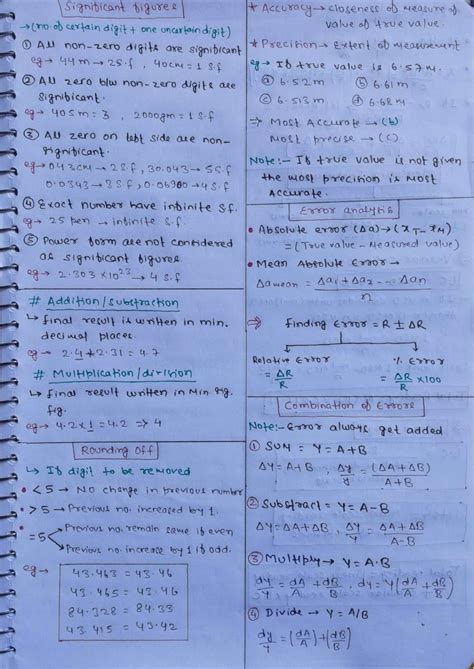 Significant figures
→ (no. of certain digit + one uncertain digit)
① All non-zero digits are significant
eg → 44m → 2S.f, 40cm = 1 S.f
② All zero b/w non-zero digits are
significant.
eg → 405m = 3, 2000gm = 1 S.f
③ All zero on left side are non-
significant.
eg → 043cm → 2S.f, 30.043 → 5S.f
0.0343 → 3 S.f, 0.06900 → 4 S.f
④ Exact number have infinite S.f.
eg → 25 pen → infinite s.f.
⑤ Power form are not considered
as significant figures.
eg → 2.303 × 10²³ → 4 S.f
# Addition/subtraction
↳ final result is written in min.
decimal places.
eg → 2.4 + 2.31 = 4.7
# Multiplication/division
↳ final result written in Min. fig.
fig.
eg → 4.2 × 1 = 4.2 ⇒ 4
Rounding off
↳ If digit to be removed
• < 5 → No change in previous number
• > 5 → Previous no. increased by 1.
• = 5 Previous no. remain same if even
Previous no. increase by 1 if odd.
eg →
43.463 = 43.46
43.465 = 43.46
84.328 = 84.33
43.415 = 43.42
* Accuracy → closeness of measure of
value of true value.
* Precision → Extent of measurement
eg → If true value is 6.57m.
ⓐ 6.52m ⓑ 6.61m
ⓒ 6.513m ⓓ 6.68m
⇒ Most Accurate → (b)
Most precise → (c)
Note:- If true value is not given
the most precision is most
Accurate.
Error analysis
• Absolute error (Δa) → (x_T - x_M)
= (True value - Measured value)
• Mean Absolute Error →
Δa mean = Δa₁ + Δa₂ --- Δan / n
⇒ Finding Error = R ± ΔR
Relative Error = ΔR/R
% Error = ΔR/R × 100
Combination of Errors
Note:- Error always get added
① Sum = Y = A+B
ΔY = A+B, Δy/y = (ΔA+ΔB)/A+B
② Subtract = Y = A-B
ΔY = ΔA+ΔB, ΔY/Y = ΔA+ΔB/A-B
③ Multiply → Y = A·B
dy/y = dA/A + dB/B, dy = Y(dA/A + dB/B)
④ Divide → Y = A/B
dy/y = (dA/A) + (dB/B)